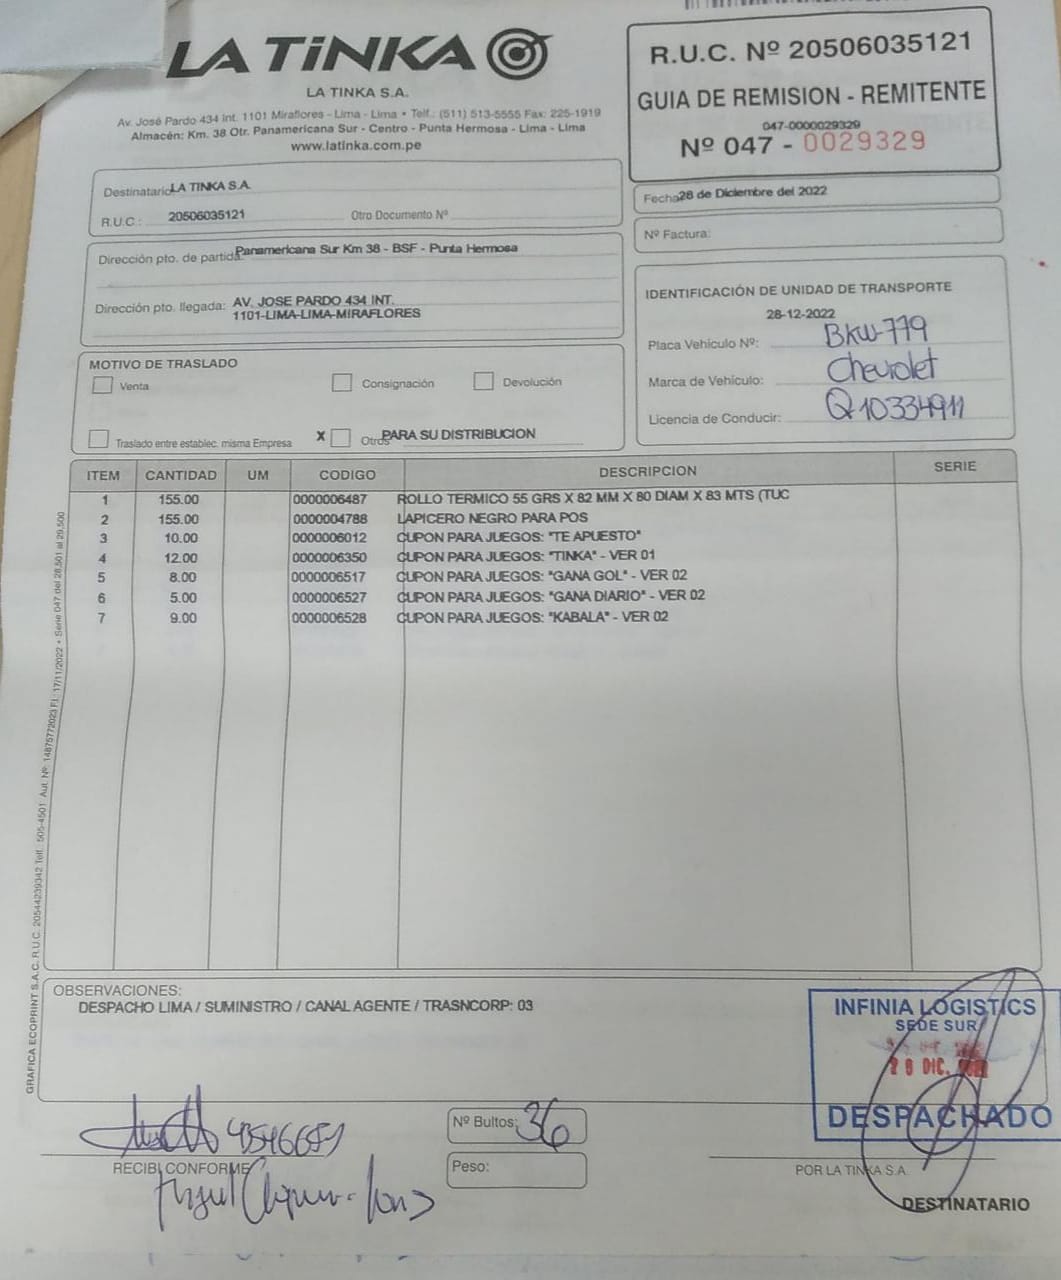 LA TiNKA
LA TINKA S.A.
Av. José Pardo 434 Int. 1101 Miraflores - Lima - Lima • Telf.: (511) 513-5555 Fax: 225-1919
Almacén: Km. 38 Otr. Panamericana Sur - Centro - Punta Hermosa - Lima - Lima
www.latinka.com.pe
R.U.C. Nº 20506035121
GUIA DE REMISION - REMITENTE
047-0000029329
Nº 047 - 0029329
Destinatario LA TINKA S.A.
R.U.C.: 20506035121 Otro Documento Nº
Fecha 28 de Diciembre del 2022
Nº Factura:
Dirección pto. de partida: Panamericana Sur Km 38 - BSF - Punta Hermosa
Dirección pto. llegada: AV. JOSE PARDO 434 INT.
1101-LIMA-LIMA-MIRAFLORES
IDENTIFICACIÓN DE UNIDAD DE TRANSPORTE
28-12-2022
Placa Vehículo Nº: BKW-779
Marca de Vehículo: Chevrolet
Licencia de Conducir: Q10334911
MOTIVO DE TRASLADO
Venta Consignación Devolución
Traslado entre establec. misma Empresa X Otros PARA SU DISTRIBUCION
ITEM CANTIDAD UM CODIGO DESCRIPCION SERIE
1 155.00 0000006487 ROLLO TERMICO 55 GRS X 82 MM X 80 DIAM X 83 MTS (TUC
2 155.00 0000004788 LAPICERO NEGRO PARA POS
3 10.00 0000006012 CUPON PARA JUEGOS: "TE APUESTO"
4 12.00 0000006350 CUPON PARA JUEGOS: "TINKA" - VER 01
5 8.00 0000006517 CUPON PARA JUEGOS: "GANA GOL" - VER 02
6 5.00 0000006527 CUPON PARA JUEGOS: "GANA DIARIO" - VER 02
7 9.00 0000006528 CUPON PARA JUEGOS: "KABALA" - VER 02
GRAFICA ECOPRINT S.A.C. R.U.C. 20544239342 Telf.: 505-4501 Aut. Nº: 14875772023 F.I.: 17/11/2022 • Serie 047 del 28,501 al 29,500
OBSERVACIONES:
DESPACHO LIMA / SUMINISTRO / CANAL AGENTE / TRASNCORP: 03
INFINIA LOGISTICS
SEDE SUR
DIC.
DESPACHADO
Nº Bultos: 36
Peso:
RECIBI CONFORME
POR LA TINKA S.A.
DESTINATARIO